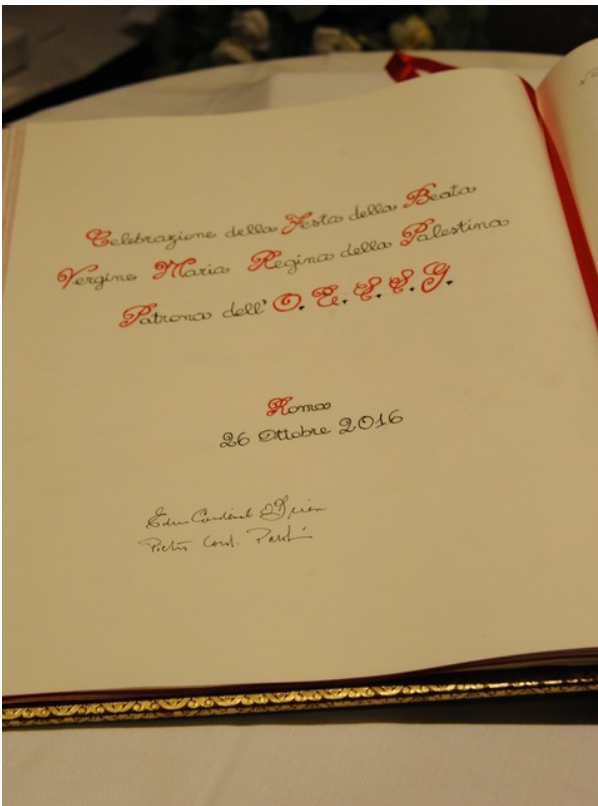 Celebrazione della Festa della Beata
Vergine Maria Regina della Palestina
Patrona dell' O. E. S. S. G.
Roma
26 Ottobre 2016
Cardinal
Pietro Card.